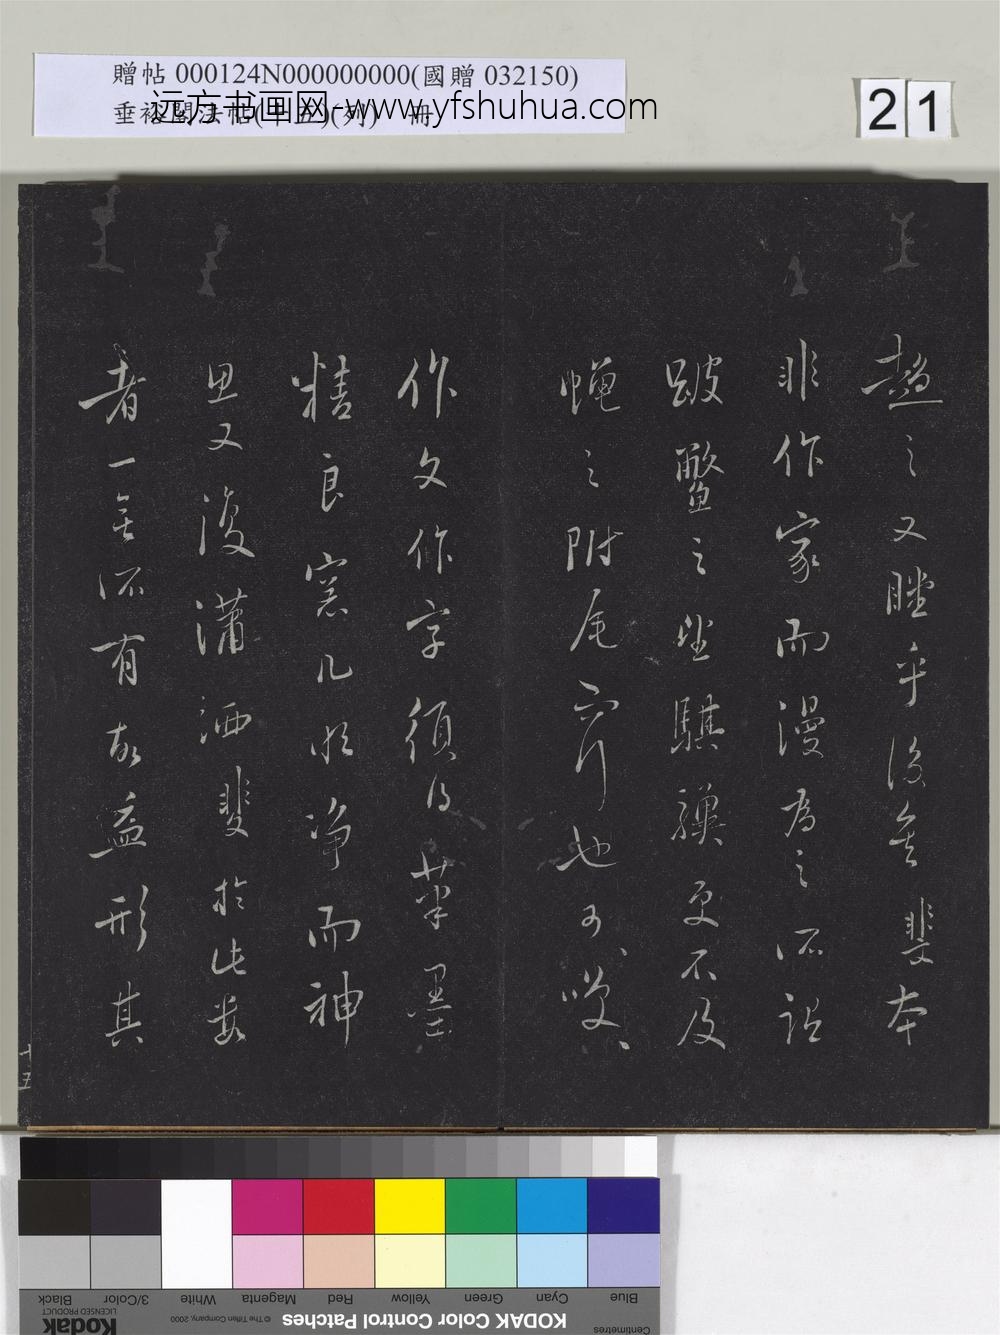 贈帖 000124N000000000(國贈 032150)
远方书画网-www.yfshuhua.com
垂裕閣法帖(十五)(列) 冊
21
趨之又瞠乎後矣斐本
非作家而漫為之所詒
跛鱉之望騏驥更不及
蠅之附尾前也可嘆
作文作字須及筆墨
精良窗几明净而神
思又復瀟洒斐於此数
者一無所有故益形其
十五
Blue
Cyan
Green
Yellow
Red
Magenta
White
3/Color
Black
Centimetres
KODAK Color Control Patches
© The Tiffen Company, 2000
Kodak
LICENSED PRODUCT